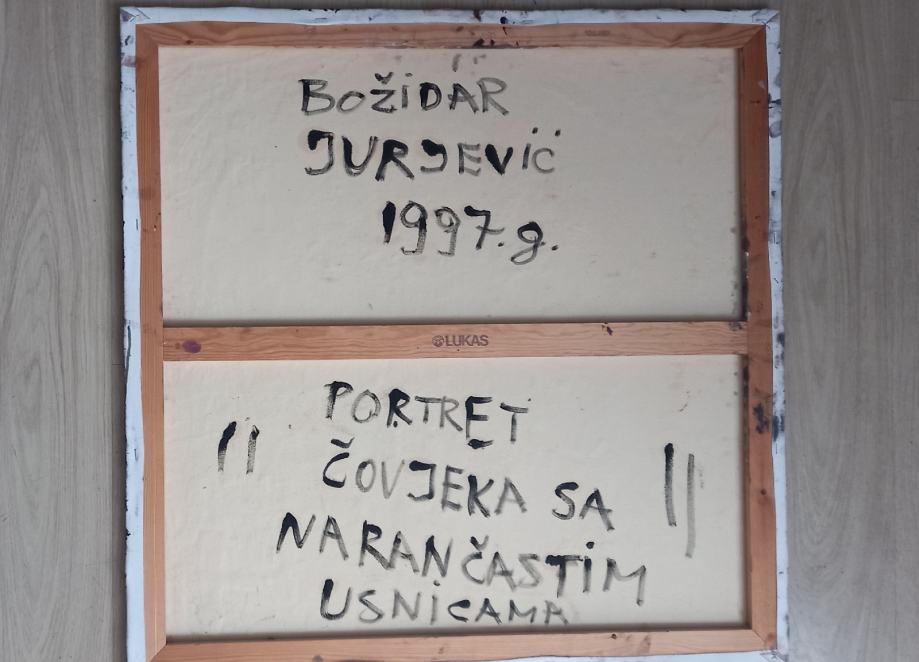 BOŽIDAR
JURJEVIĆ
1997. g.
LUKAS
" PORTRET
ČOVJEKA SA
NARANČASTIM
USNICAMA "